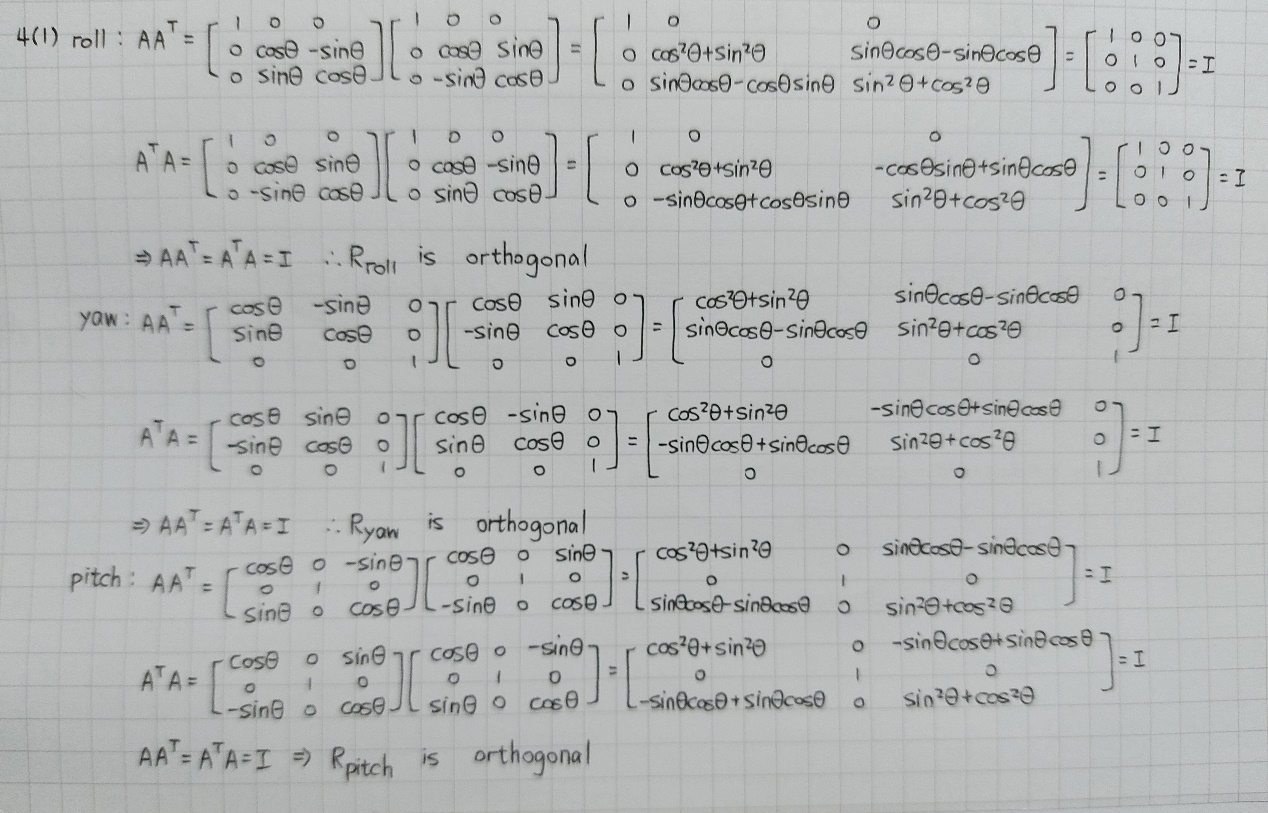 4(1) roll : AAᵀ = [1 0 0; 0 cosθ -sinθ; 0 sinθ cosθ][1 0 0; 0 cosθ sinθ; 0 -sinθ cosθ] = [1 0 0; 0 cos²θ+sin²θ sinθcosθ-sinθcosθ; 0 sinθcosθ-cosθsinθ sin²θ+cos²θ] = [1 0 0; 0 1 0; 0 0 1] = I
AᵀA = [1 0 0; 0 cosθ sinθ; 0 -sinθ cosθ][1 0 0; 0 cosθ -sinθ; 0 sinθ cosθ] = [1 0 0; 0 cos²θ+sin²θ -cosθsinθ+sinθcosθ; 0 -sinθcosθ+cosθsinθ sin²θ+cos²θ] = [1 0 0; 0 1 0; 0 0 1] = I
⇒ AAᵀ = AᵀA = I ∴ R_roll is orthogonal
yaw : AAᵀ = [cosθ -sinθ 0; sinθ cosθ 0; 0 0 1][cosθ sinθ 0; -sinθ cosθ 0; 0 0 1] = [cos²θ+sin²θ sinθcosθ-sinθcosθ 0; sinθcosθ-sinθcosθ sin²θ+cos²θ 0; 0 0 1] = I
AᵀA = [cosθ sinθ 0; -sinθ cosθ 0; 0 0 1][cosθ -sinθ 0; sinθ cosθ 0; 0 0 1] = [cos²θ+sin²θ -sinθcosθ+sinθcosθ 0; -sinθcosθ+sinθcosθ sin²θ+cos²θ 0; 0 0 1] = I
⇒ AAᵀ = AᵀA = I ∴ R_yaw is orthogonal
pitch : AAᵀ = [cosθ 0 -sinθ; 0 1 0; sinθ 0 cosθ][cosθ 0 sinθ; 0 1 0; -sinθ 0 cosθ] = [cos²θ+sin²θ 0 sinθcosθ-sinθcosθ; 0 1 0; sinθcosθ-sinθcosθ 0 sin²θ+cos²θ] = I
AᵀA = [cosθ 0 sinθ; 0 1 0; -sinθ 0 cosθ][cosθ 0 -sinθ; 0 1 0; sinθ 0 cosθ] = [cos²θ+sin²θ 0 -sinθcosθ+sinθcosθ; 0 1 0; -sinθcosθ+sinθcosθ 0 sin²θ+cos²θ] = I
AAᵀ = AᵀA = I ⇒ R_pitch is orthogonal